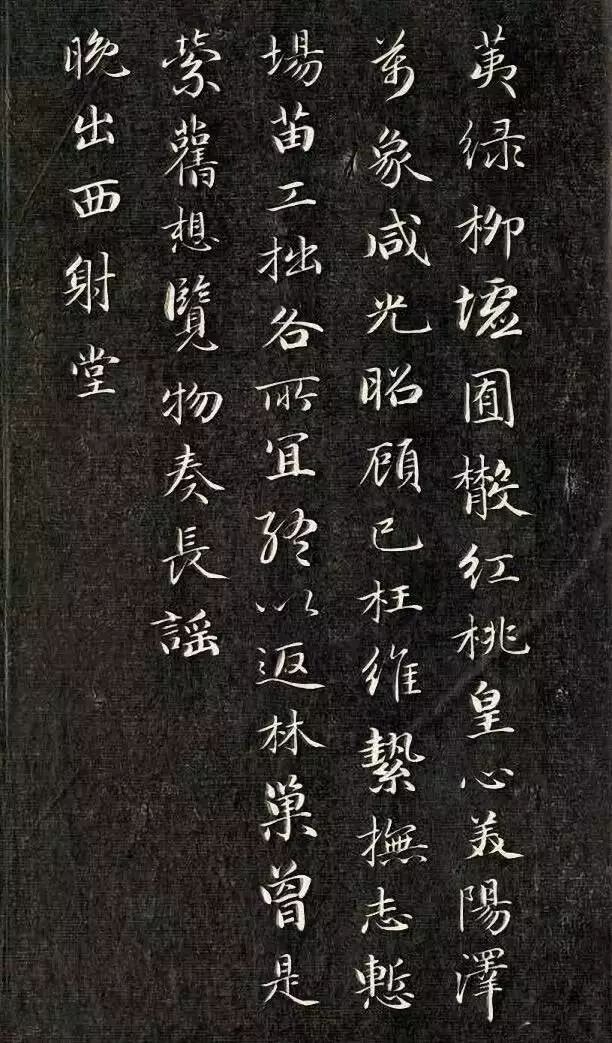 荑緑柳墟囿散紅桃皇心美陽澤
萬象咸光昭顧己枉維縶撫志慙
場苗工拙各所宜終以返林巢曾是
縈舊想覽物奏長謡
晚出西射堂